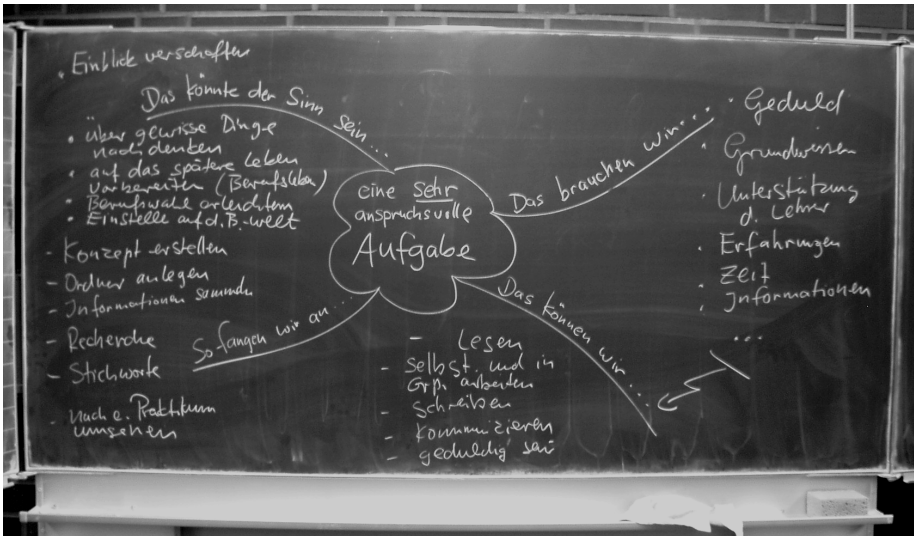 • Einblick verschaffen
Das könnte der Sinn sein...
• über gewisse Dinge
nachdenken
• auf das spätere Leben
vorbereiten (Berufsleben)
• Berufswahl erleichtern
• Einstelle auf d. B.-welt
- Konzept erstellen
- Ordner anlegen
- Informationen sammeln
- Recherche
- Stichworte
- nach e. Praktikum
umsehen
So fangen wir an...
eine sehr
anspruchsvolle
Aufgabe
Das brauchen wir...
• Geduld
• Grundwissen
• Unterstützung
d. Lehrer
• Erfahrungen
• Zeit
• Informationen
...
Das können wir...
- Lesen
- Selbst. und in
Grp. arbeiten
- Schreiben
- Kommunizieren
- geduldig sein